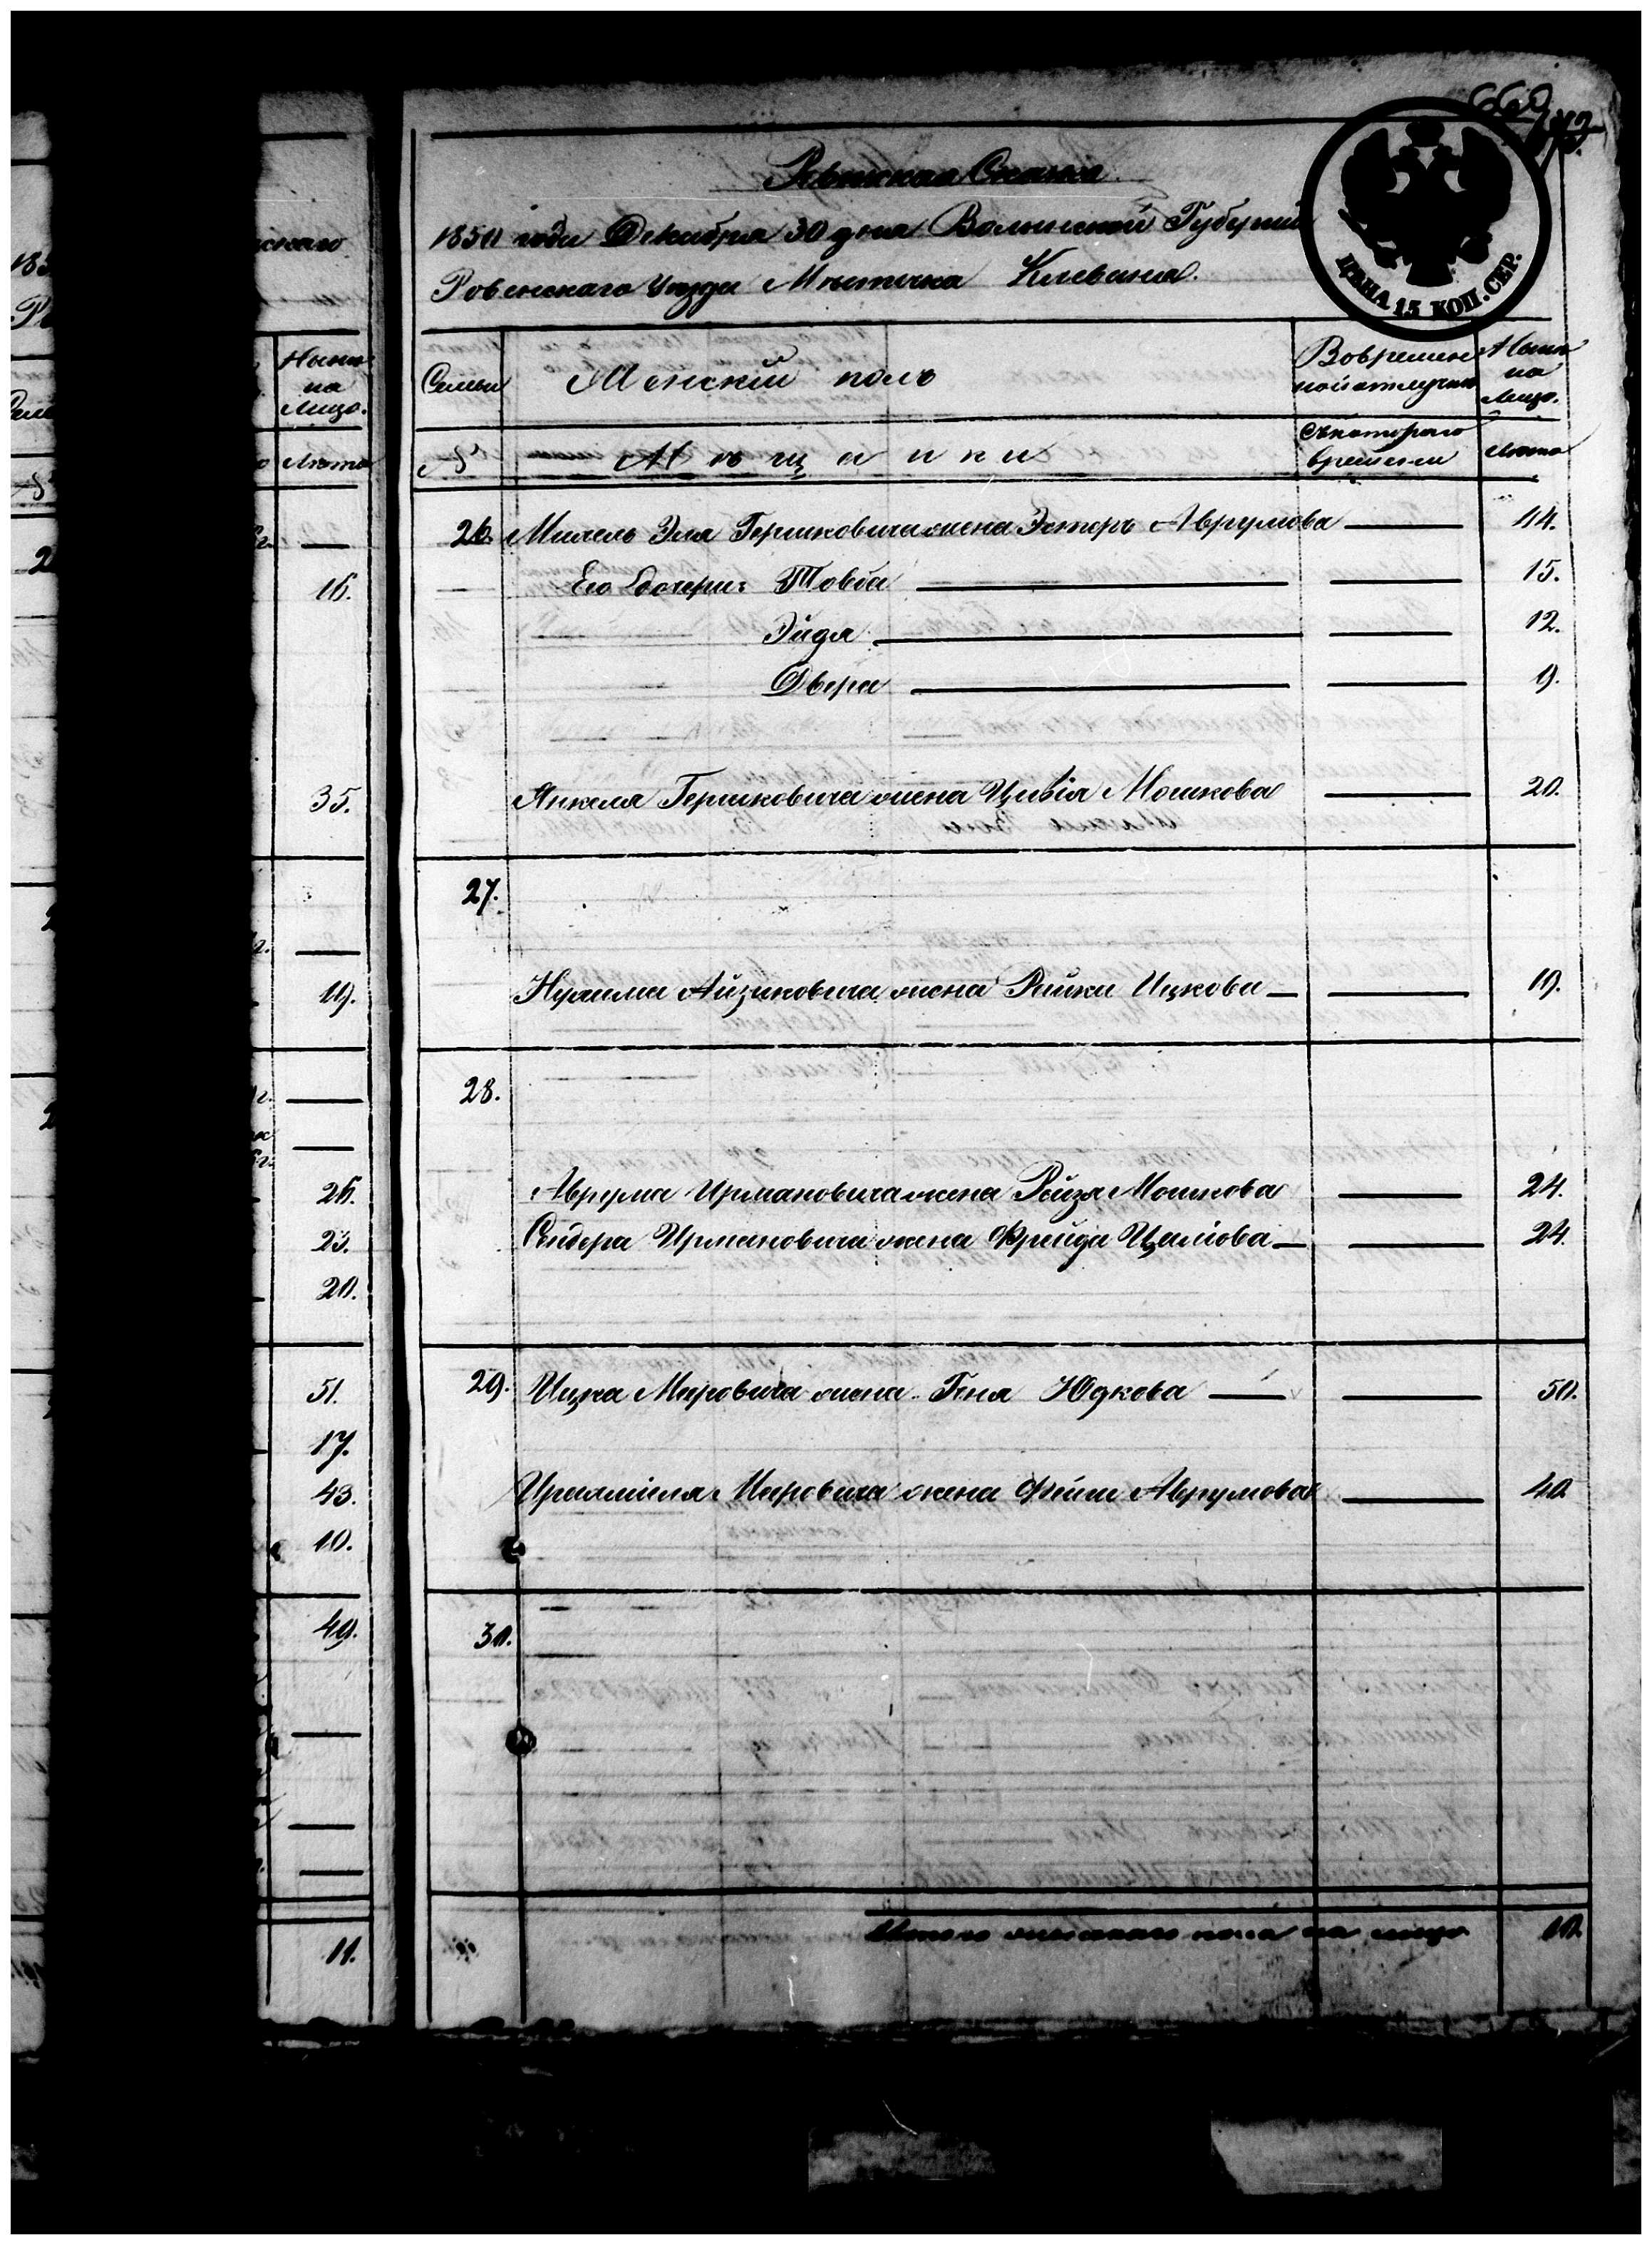 660
Ревизская Сказка.
1850 года Декабря 30 дня Волынской Губернии
Ровенскаго Уезда Местечка Клеваня.
ЦЕНА 15 КОП. СЕР.
Семьи Женскій полъ Во временной отлучке Ныне на лицо.
№ Мещанки Съ котораго времени Лета
26. Эля Гершковича жена Эстеръ Аврумова — 44.
Его дочери: Товба — 15.
Эйдя — 12.
Двера — 9.
Янкеля Гершковича жена Цивія Мошкова — 20.
27.
Нухима Айзиковича жена Рейки Ицкова — 19.
28.
Аврума Ирмановича жена Рейзя Мошкова — 24.
Сендера Ирмановича жена Фрейда — 24.
29. Ицка Меровича жена Геня Юдкова — 50.
Мировича жена Фейги Аврумова — 40
30.
Итого женскаго пола на лицо 10.
скаго
Ныне
на
Лицо.
Лета
16.
35.
19.
26.
23.
20.
51.
17.
43.
10.
49.
11.